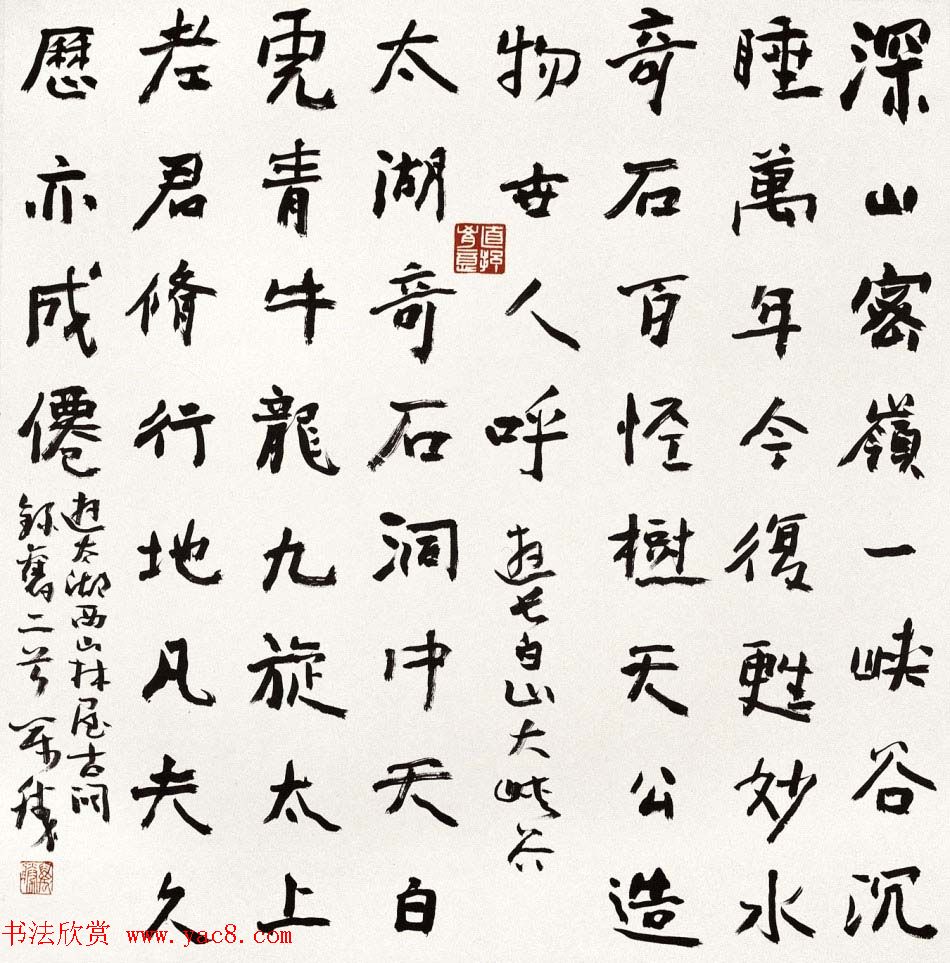 深山密嶺一峽谷沉
睡萬年今復甦妙水
奇石百怪樹天公造
物世人呼
遊长白山大峡谷
太湖奇石洞中天白
虎青牛龍九旋太上
老君脩行地凡夫久
歷亦成僊
遊太湖西山林屋古洞
錄舊二首
书法欣赏 www.yac8.com